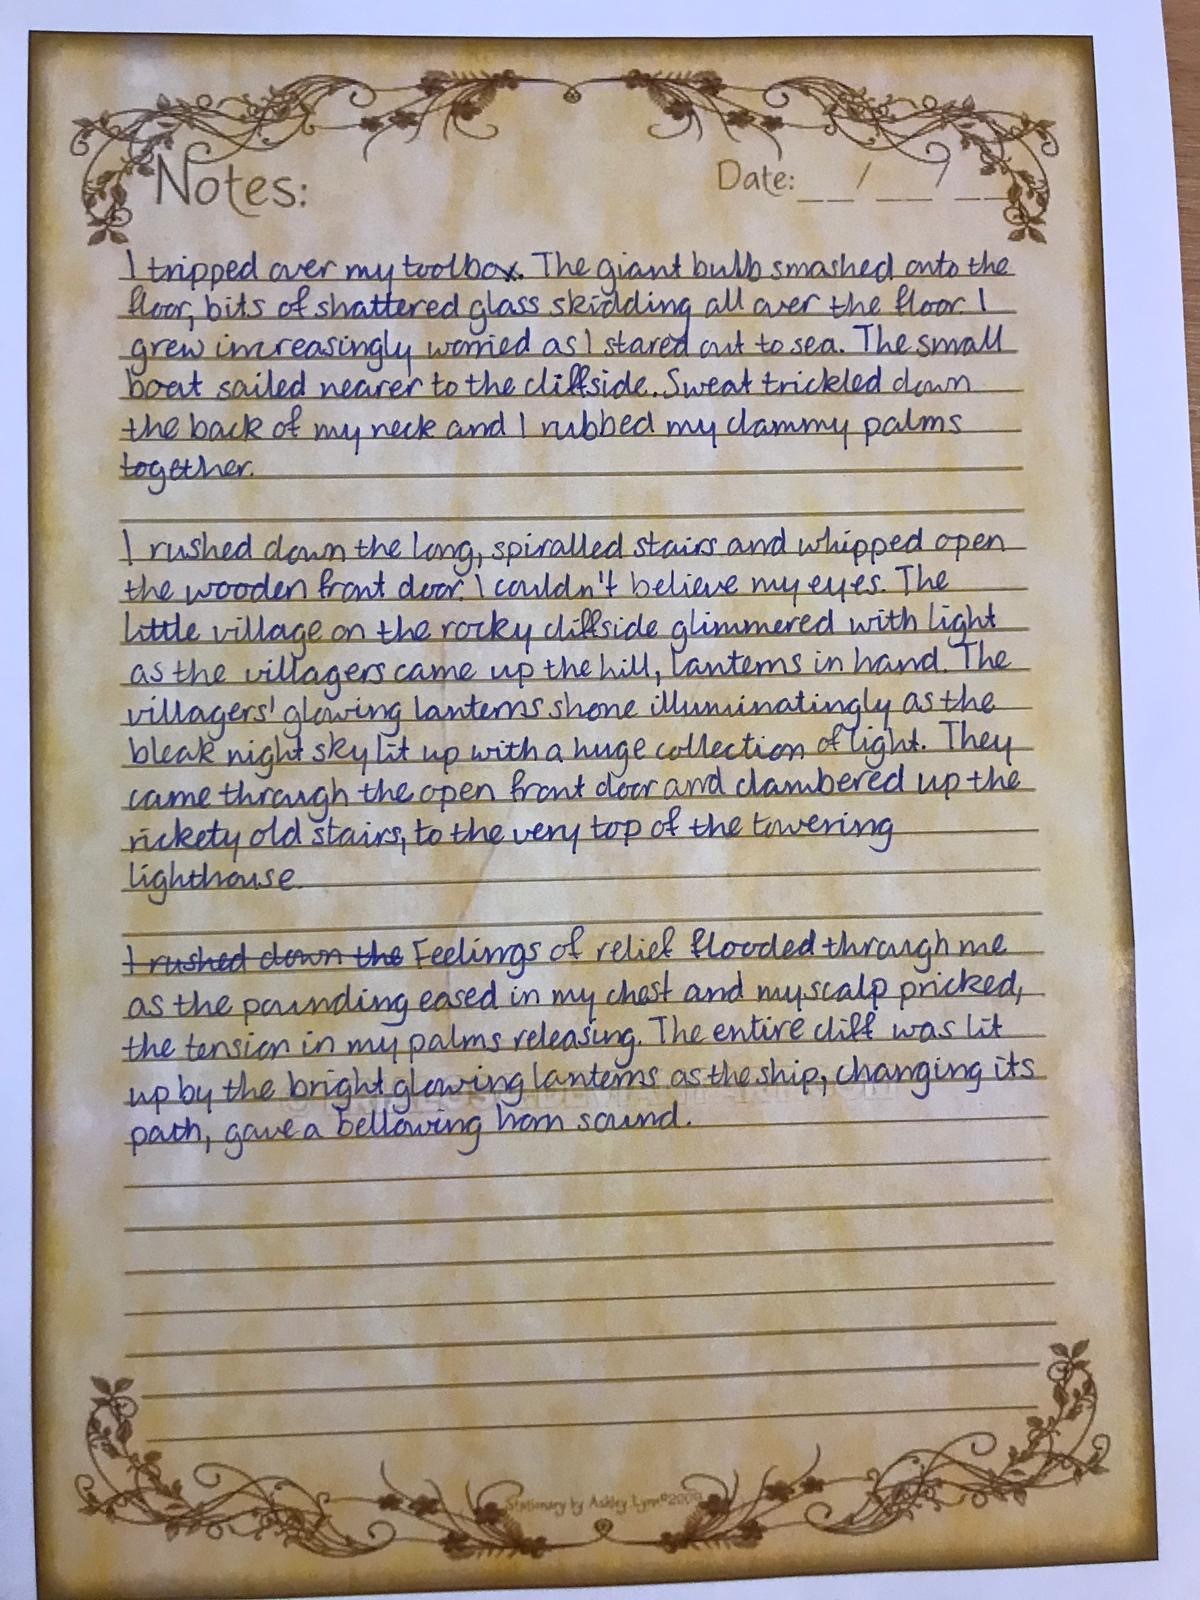 Notes:
Date: __ / __ / __
I tripped over my toolbox. The giant bulb smashed onto the
floor, bits of shattered glass skidding all over the floor. I
grew increasingly worried as I stared out to sea. The small
boat sailed nearer to the cliffside. Sweat trickled down
the back of my neck and I rubbed my clammy palms
together.
I rushed down the long, spiralled stairs and whipped open
the wooden front door. I couldn't believe my eyes. The
little village on the rocky cliffside glimmered with light
as the villagers came up the hill, lanterns in hand. The
villagers' glowing lanterns shone illuminatingly as the
bleak night sky lit up with a huge collection of light. They
came through the open front door and clambered up the
rickety old stairs, to the very top of the towering
lighthouse.
I rushed down the Feelings of relief flooded through me
as the pounding eased in my chest and my scalp pricked,
the tension in my palms releasing. The entire cliff was lit
up by the bright glowing lanterns as the ship, changing its
path, gave a bellowing horn sound.
Stationary by Ashley Lynn©2009